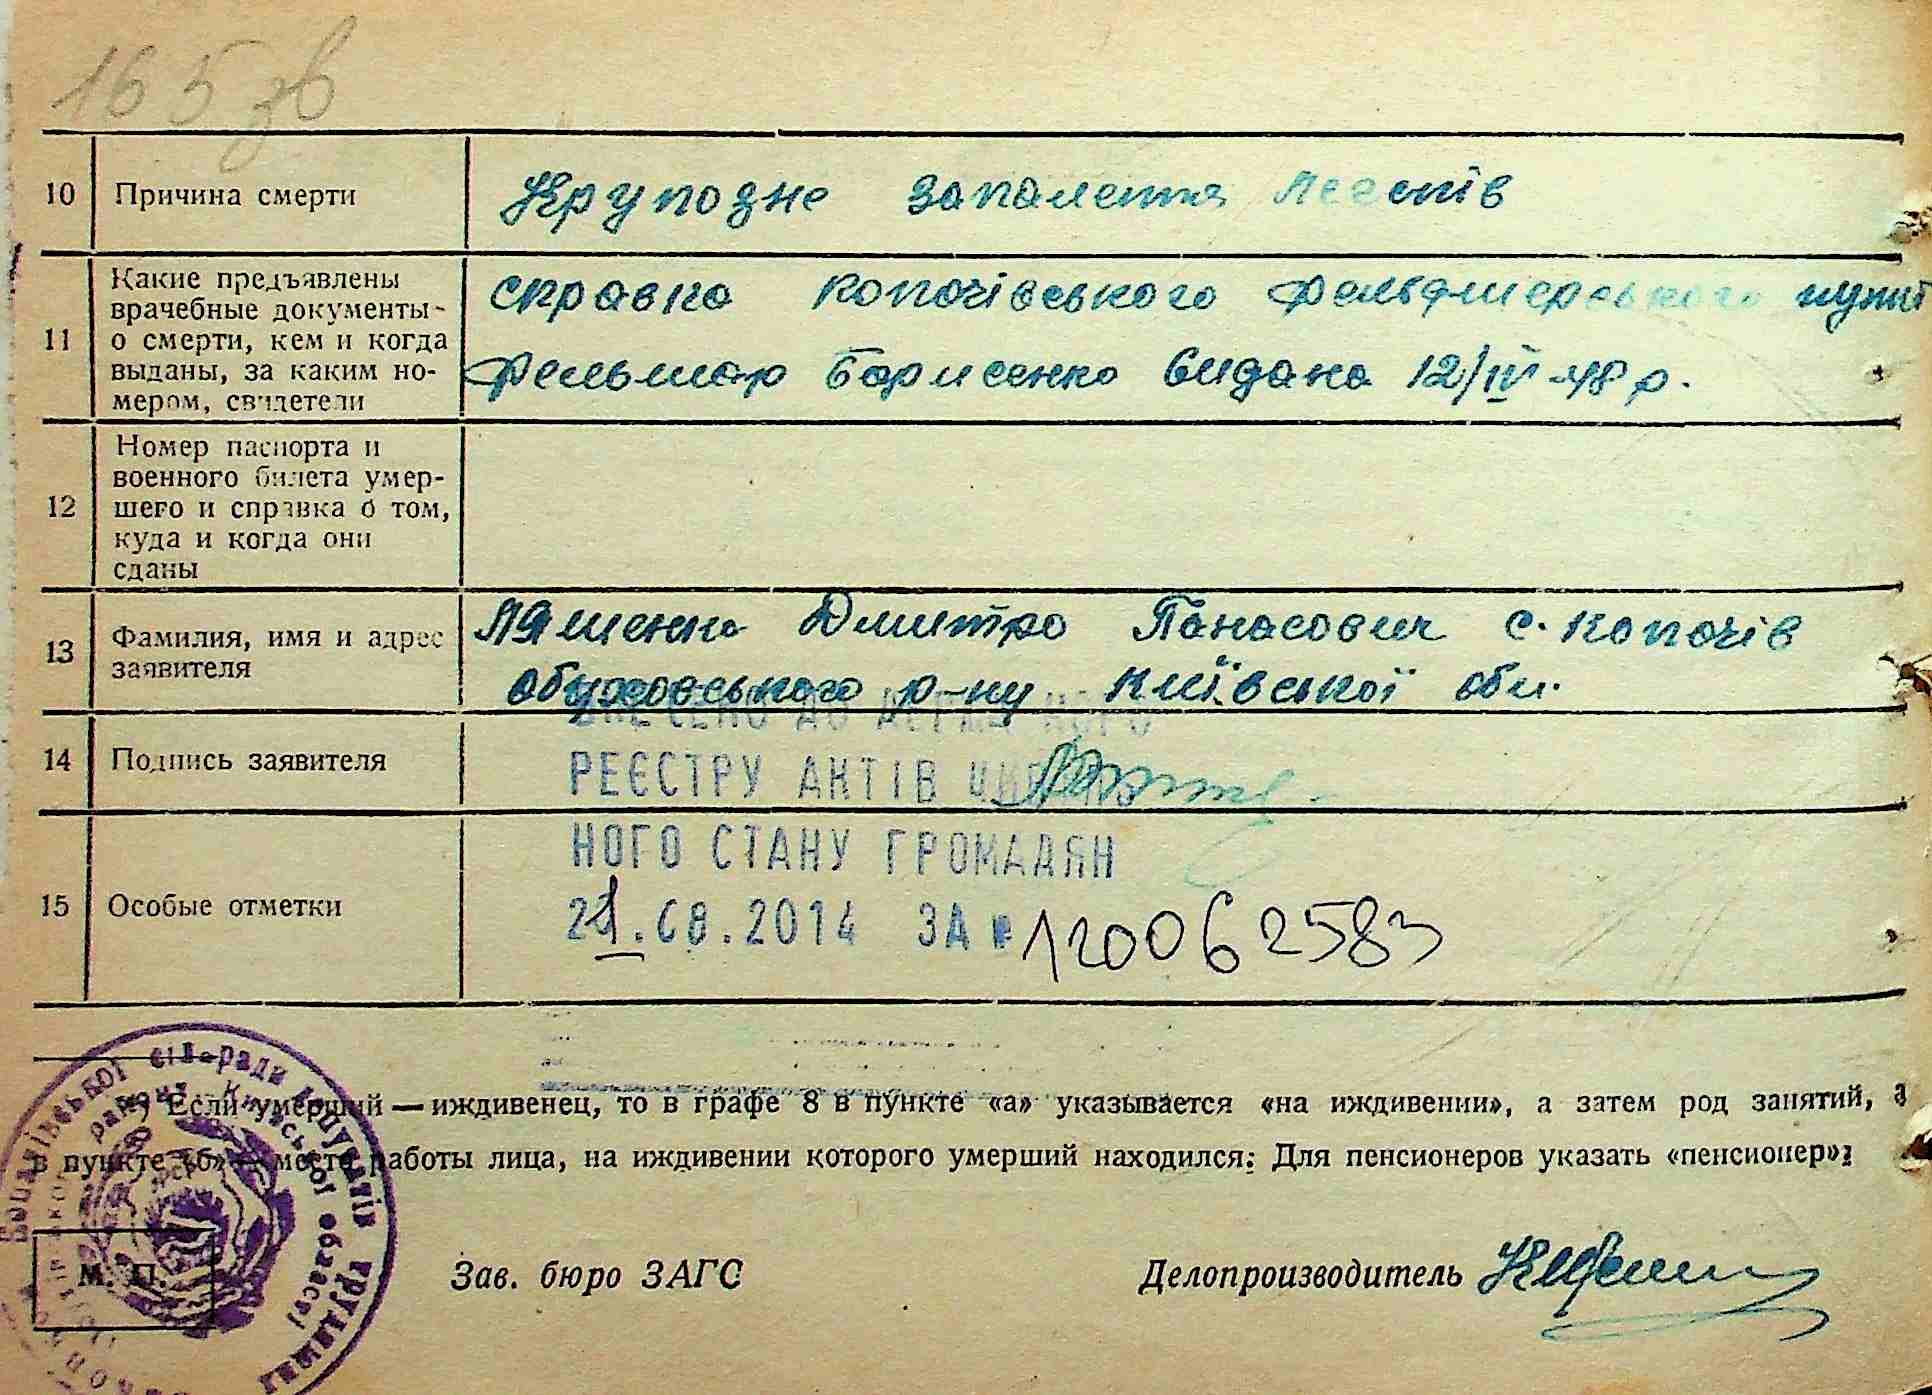 165 зв
10 Причина смерти Крупозне запалення легенів
11 Какие предъявлены
врачебные документы
о смерти, кем и когда
выданы, за каким но-
мером, свидетели
справка Копачівського фельдшерського пункт
фельшар Борисенко видана 12/IV-48 р.
12 Номер паспорта и
военного билета умер-
шего и справка о том,
куда и когда они
сданы
13 Фамилия, имя и адрес
заявителя
Ляшенко Дмитро Панасович с. Копачів
Обуховського р-ну Київської обл.
ВНЕСЕНО ДО ДЕРЖАВНОГО
14 Подпись заявителя
РЕЄСТРУ АКТІВ ЦИВІЛЬ
НОГО СТАНУ ГРОМАДЯН
15 Особые отметки
21.08.2014 ЗА № 120062583
*) Если умерший — иждивенец, то в графе 8 в пункте «а» указывается «на иждивении», а затем род занятий, а
в пункте «б» место работы лица, на иждивении которого умерший находился: Для пенсионеров указать «пенсионер»:
М. П.
Зав. бюро ЗАГС
Делопроизводитель
сіль-ради депутатів трудящих
району Київської області